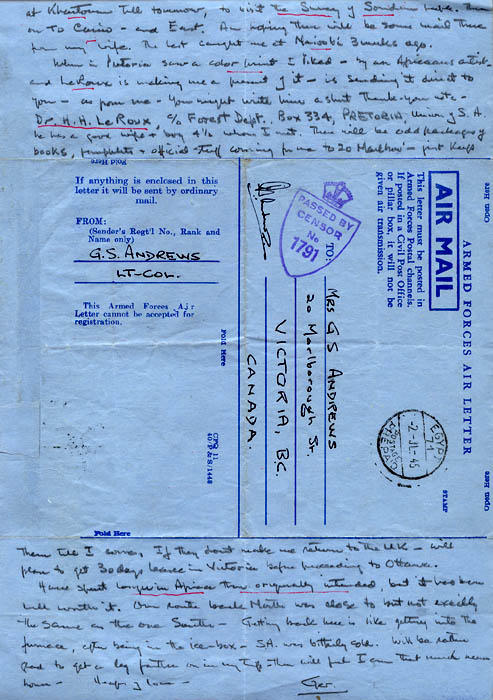 at Khartoum till tomorrow, to visit the Survey of Soudan here. Then
on to Cairo - and East. Am hoping there will be some mail there
from my wife. The last caught me at Nairobi 3 weeks ago.
When in Pretoria saw a color print I liked - by an African artist -
and LeRoux is making me a present of it - is sending it direct to
you - as from me - You might write him a short thank-you note -
Dr. H. A. LeRoux c/o Forest Dept. Box 334, PRETORIA, Union of S. A.
he has a good wife & boy 4½ whom I met. There will be odd packages of
books, pamphlets & official stuff coming for me to 20 Marlboro' - just keep
Fold Here
If anything is enclosed in this
letter it will be sent by ordinary
mail.
FROM:
(Sender's Regt'l No., Rank and
Name only)
G.S. ANDREWS
LT-COL.
This Armed Forces Air
Letter cannot be accepted for
registration.
Fold Here
GPQ 11
40/P & S/1448
PASSED BY
CENSOR
No
1791
TO:
MRS G S ANDREWS
20 Marlborough St.
VICTORIA, B.C.
CANADA.
Open Here
ARMED FORCES AIR LETTER
AIR MAIL
This letter must be posted in
Armed Forces Postal channels.
If posted in a Civil Post Office
or pillar box, it will not be
given air transmission.
STAMP
EGYPT 71
2-JL-45
PREPAID
Open Here
Fold Here
them till I come. If they don't make me return to the UK - will
plan to get 30 days leave in Victoria before proceeding to Ottawa.
Have spent longer in Africa than originally intended, but it has been
well worth it. Our route back North was close to but not exactly
the same as the one South - Getting back here is like getting into the
furnace, after being in the ice-box - S.A. was bitterly cold. Will be rather
glad to get a leg further on in my trip - then will feel I am that much nearer
home - Heaps of love -
Ger.